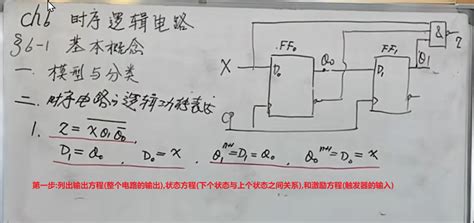 ch6 时序逻辑电路
§6-1 基本概念
一. 模型与分类
二. 时序电路的逻辑功能表达
1. Z = \overline{X Q₁ Q₀}
D₁ = Q₀ , D₀ = X
Q₁ⁿ⁺¹ = D₁ = Q₀ , Q₀ⁿ⁺¹ = D₀ = X
X
CP
FF₀
D₀
Q₀
FF₁
D₁
Q₁
&
Z
第一步:列出输出方程(整个电路的输出),状态方程(下个状态与上个状态之间关系),和激励方程(触发器的输入)